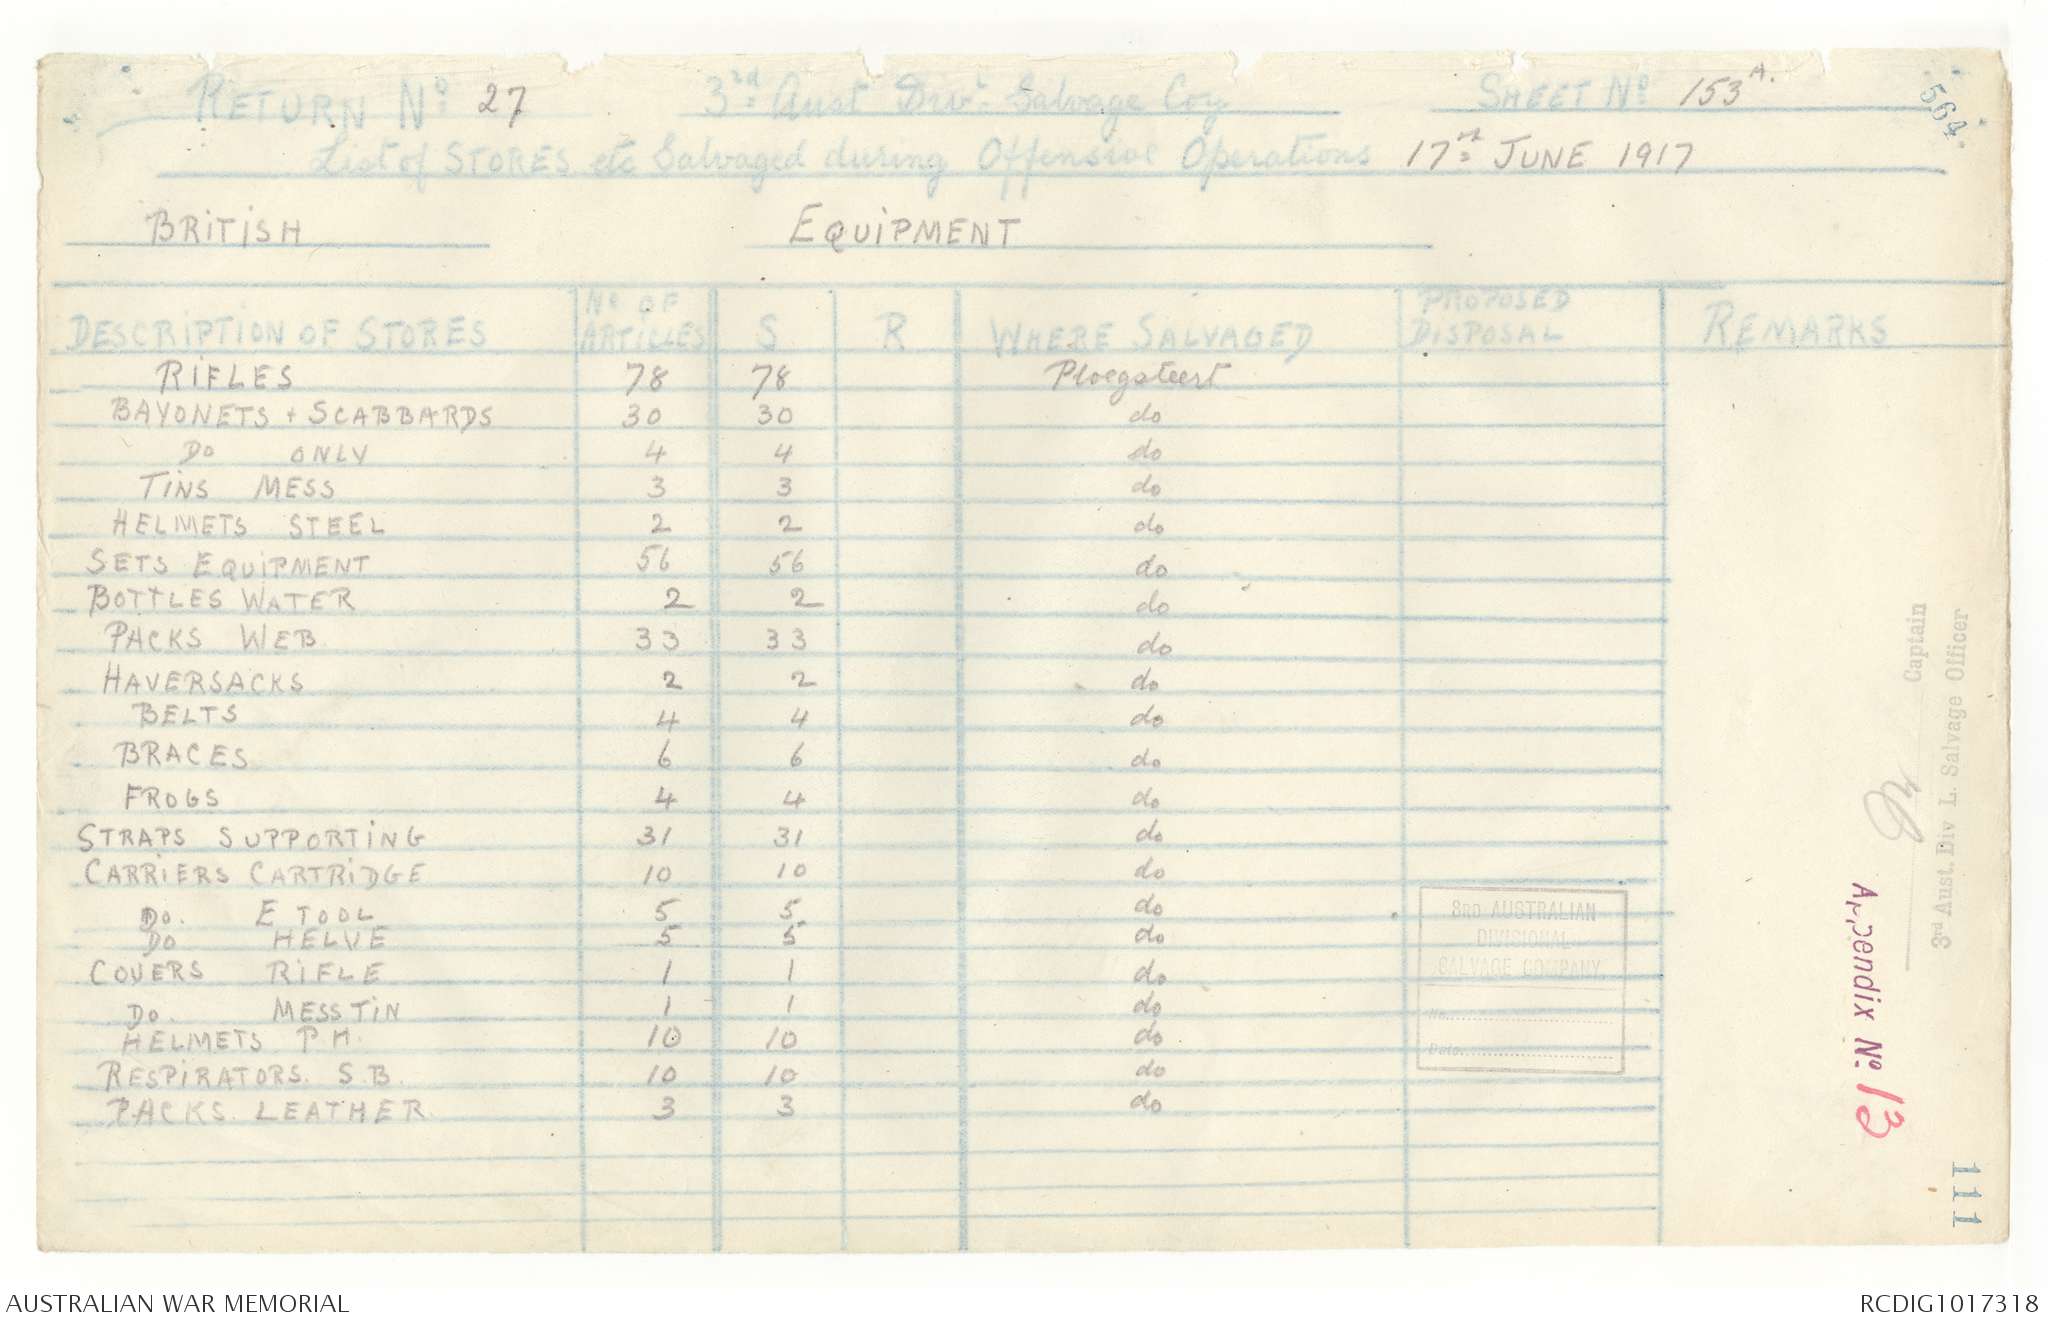 RETURN No. 27 3rd Aust Divl. Salvage Coy SHEET No 153A.
564
List of STORES etc Salvaged during Offensive Operations 17th JUNE 1917
BRITISH EQUIPMENT
DESCRIPTION OF STORES No OF ARTICLES S R WHERE SALVAGED PROPOSED DISPOSAL REMARKS
RIFLES 78 78 Ploegsteert
BAYONETS + SCABBARDS 30 30 do
Do ONLY 4 4 do
TINS MESS 3 3 do
HELMETS STEEL 2 2 do
SETS EQUIPMENT 56 56 do
BOTTLES WATER 2 2 do
PACKS WEB. 33 33 do
HAVERSACKS 2 2 do
BELTS 4 4 do
BRACES 6 6 do
FROGS 4 4 do
STRAPS SUPPORTING 31 31 do
CARRIERS CARTRIDGE 10 10 do
Do. E TOOL 5 5 do
Do HELVE 5 5 do
COVERS RIFLE 1 1 do
Do. MESS TIN 1 1 do
HELMETS P.H. 10 10 do
RESPIRATORS. S.B. 10 10 do
PACKS. LEATHER 3 3 do
3RD AUSTRALIAN
DIVISIONAL
SALVAGE COMPANY.
No.
Date.
Captain
3rd Aust. Div L. Salvage Officer
Appendix No. 13
111
AUSTRALIAN WAR MEMORIAL RCDIG1017318